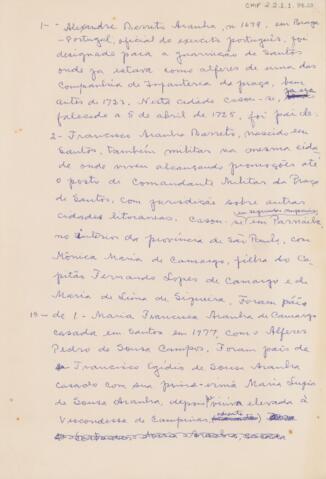 CMP 2.2.1.1.
1- - Alexandre Barreto Aranha, n 1679, em Braga
-Portugal, oficial do exercito português, foi
designado para a guarnição de Santos
onde já estava como alferes de uma das
Companhia de Infanteria da praça, bem
antes de 1723. Nesta cidade casou-se,
falecedo a 5 de abril de 1725, foi pai de:
2- Francisco Aranha Barreto, nascido em
Santos, também militar na mesma cida
de onde viveu alcançando promoções até
o posto de Comandante Militar da Praça
de Santos, com jurisdição sobre outras
cidades litoraneas. Casou-se em segundas nupcias em Parnaiba
no interior da provincia de São Paulo, com
Mônica Maria de Camargo, filha do Ca-
pitão Fernando Lopes de Camargo e de
Maria de Lima de Siqueira. Foram pais
de 1 - Maria Francisca Aranha de Camargo
casada em Santos em 1777, com o Alferes
Pedro de Sousa Campos. Foram pais de
Francisco Egídio de Sousa Aranha
casado com sua prima-irmã Maria Luzia
de Sousa Aranha, depois viuva elevada à
Viscondessa de Campinas,